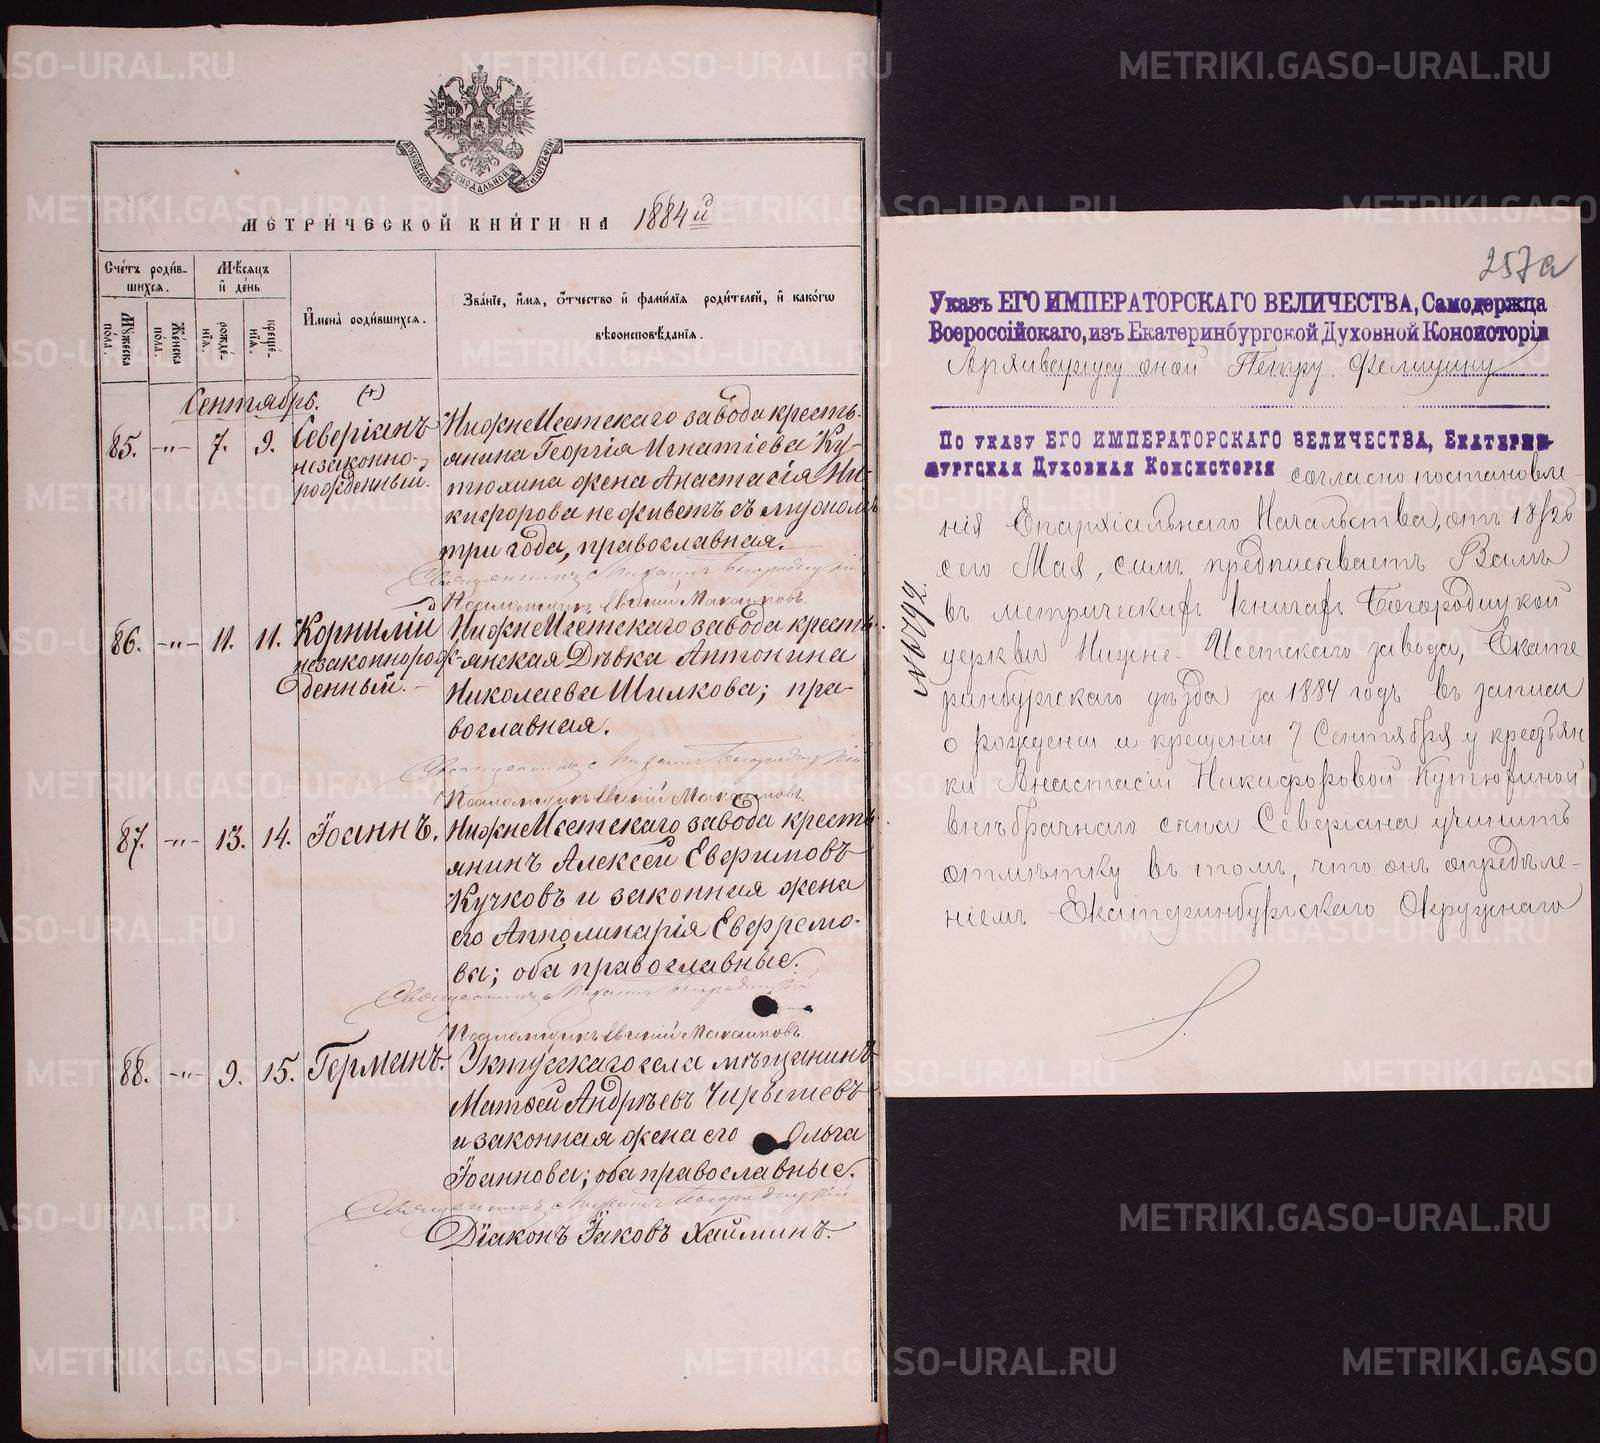 МОСКОВСКОЙ СѴНОДАЛЬНОЙ ТИПОГРАФІИ
МЕТРИ́ЧЕСКОЙ КНИ́ГИ НА 1884й
Сче́тъ роди́в-
шихся.
Мѣ́сяцъ
и҆ де́нь
Му́жеска
по́ла.
Же́нска
пола.
рожде́-
нїѧ.
креще́-
нїѧ.
И҆мена̀ роди́вшихся.
Зва́нїе, и҆́мя, ѻ҆́тчество и҆ фами́лїя роди́телей, и҆ како́гѡ
вѣроисповѣ́данїя.
Сентябрь. (+)
85. -"- 7. 9. Северіанъ
незаконно-
рожденный.
НижнеИсетскаго завода кресть-
янина Георгія Игнатіева Ку-
тюхина жена Анастасія Ни-
кифорова не живетъ съ мужомъ
три года, православная.
Священникъ Михаилъ Богородицкій
Псаломщикъ Евгеній Макаровъ.
86. -"- 11. 11. Корнилій
незаконнорож-
денный.-
НижнеИсетскаго завода кресть-
янская Дѣвка Антонина
Николаева Шилкова; пра-
вославная.
Священникъ Михаилъ Богородицкій
Псаломщикъ Евгеній Макаровъ.
87. -"- 13. 14. Іоаннъ.
НижнеИсетскаго завода кресть-
янинъ Алексей Евфимовъ
Кучковъ и законная жена
его Апполинарія Евфремо-
ва; оба православные.
Священникъ Михаилъ Богородицкій
Псаломщикъ Евгеній Макаровъ
88. -"- 9. 15. Германъ.
Уктусскаго села мѣщанинъ
Матѳей Андрѣевъ Чирышевъ
и законная жена его Ольга
Іоаннова; оба православные.
Священникъ Михаилъ Богородицкій
Діаконъ Іаковъ Хайминъ.
257а
Указъ ЕГО ИМПЕРАТОРСКАГО ВЕЛИЧЕСТВА, Самодержца
Всероссійскаго, изъ Екатеринбургской Духовной Консисторіи
Архиваріусу оной Петру Фелицину
По указу ЕГО ИМПЕРАТОРСКАГО ВЕЛИЧЕСТВА, Екатерин-
бургская Духовная Консисторія согласно постановле-
нія Епархіальнаго Начальства, отъ 18/26
сего Мая, симъ предписываетъ Вамъ
въ метрическихъ книгахъ Богородицкой
церкви Нижне-Исетскаго завода, Екате
ринбургскаго уѣзда за 1884 годъ въ записи
о рожденіи и крещеніи 7 Сентября у крестьян
ки Анастасіи Никифоровой Кутюхиной
внѣбрачнаго сына Северіана учинить
отмѣтку въ томъ, что онъ опредѣле-
ніемъ Екатеринбургскаго Окружнаго
№ 6792
METRIKI.GASO-URAL.RU